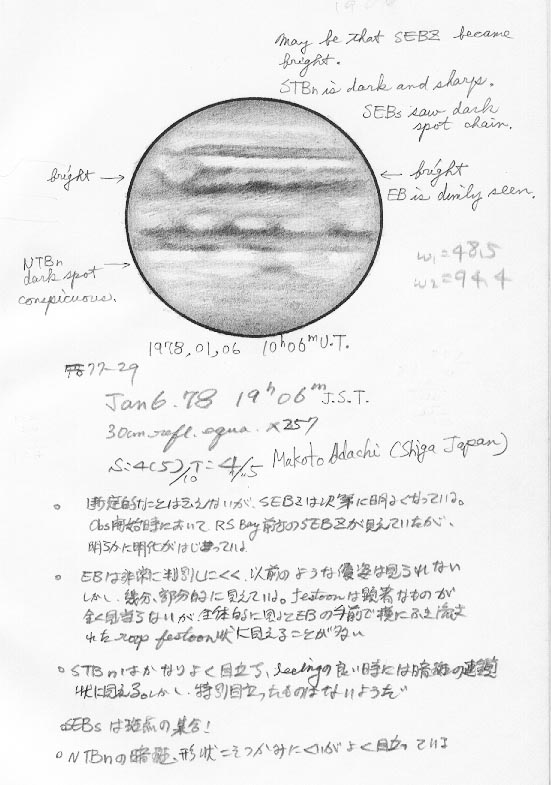 May be that SEBZ became
bright.
STBn is dark and sharp.
SEBs saw dark
spot chain.
bright →
← bright
EB is dimly seen.
NTBn
dark spot
conspicuous.
ω₁=48.5
ω₂=94.4
1978,01,06 10ʰ06ᵐU.T.
77-29
Jan 6.78 19ʰ06ᵐJ.S.T.
30cm refl. equa. ×257
S:4(5)/10 T=4/5 Makoto Adachi (Shiga Japan)
。断定的なことは言えないが、SEBZは次第に明るくなっている。
Obs開始時において RS Bay 前方のSEBZが見えていたが、
明らかに明化がはじまっている
。EBは非常に判別しにくく、以前のような優姿は見られない
しかし、幾分、部分的に見えている。festoonは顕著なものが
全く見当らないが、全体的に見るとEBの手前で横にふき流さ
れた roop festoon状に見えることが多い
。STBnはかなりよく目立つ、seeingの良い時には暗斑の連鎖
状に見える。しかし、特別目立ったものはないようだ
SEBs は斑点の集合!
。NTBnの暗斑、形状こそつかみにくいがよく目立っている